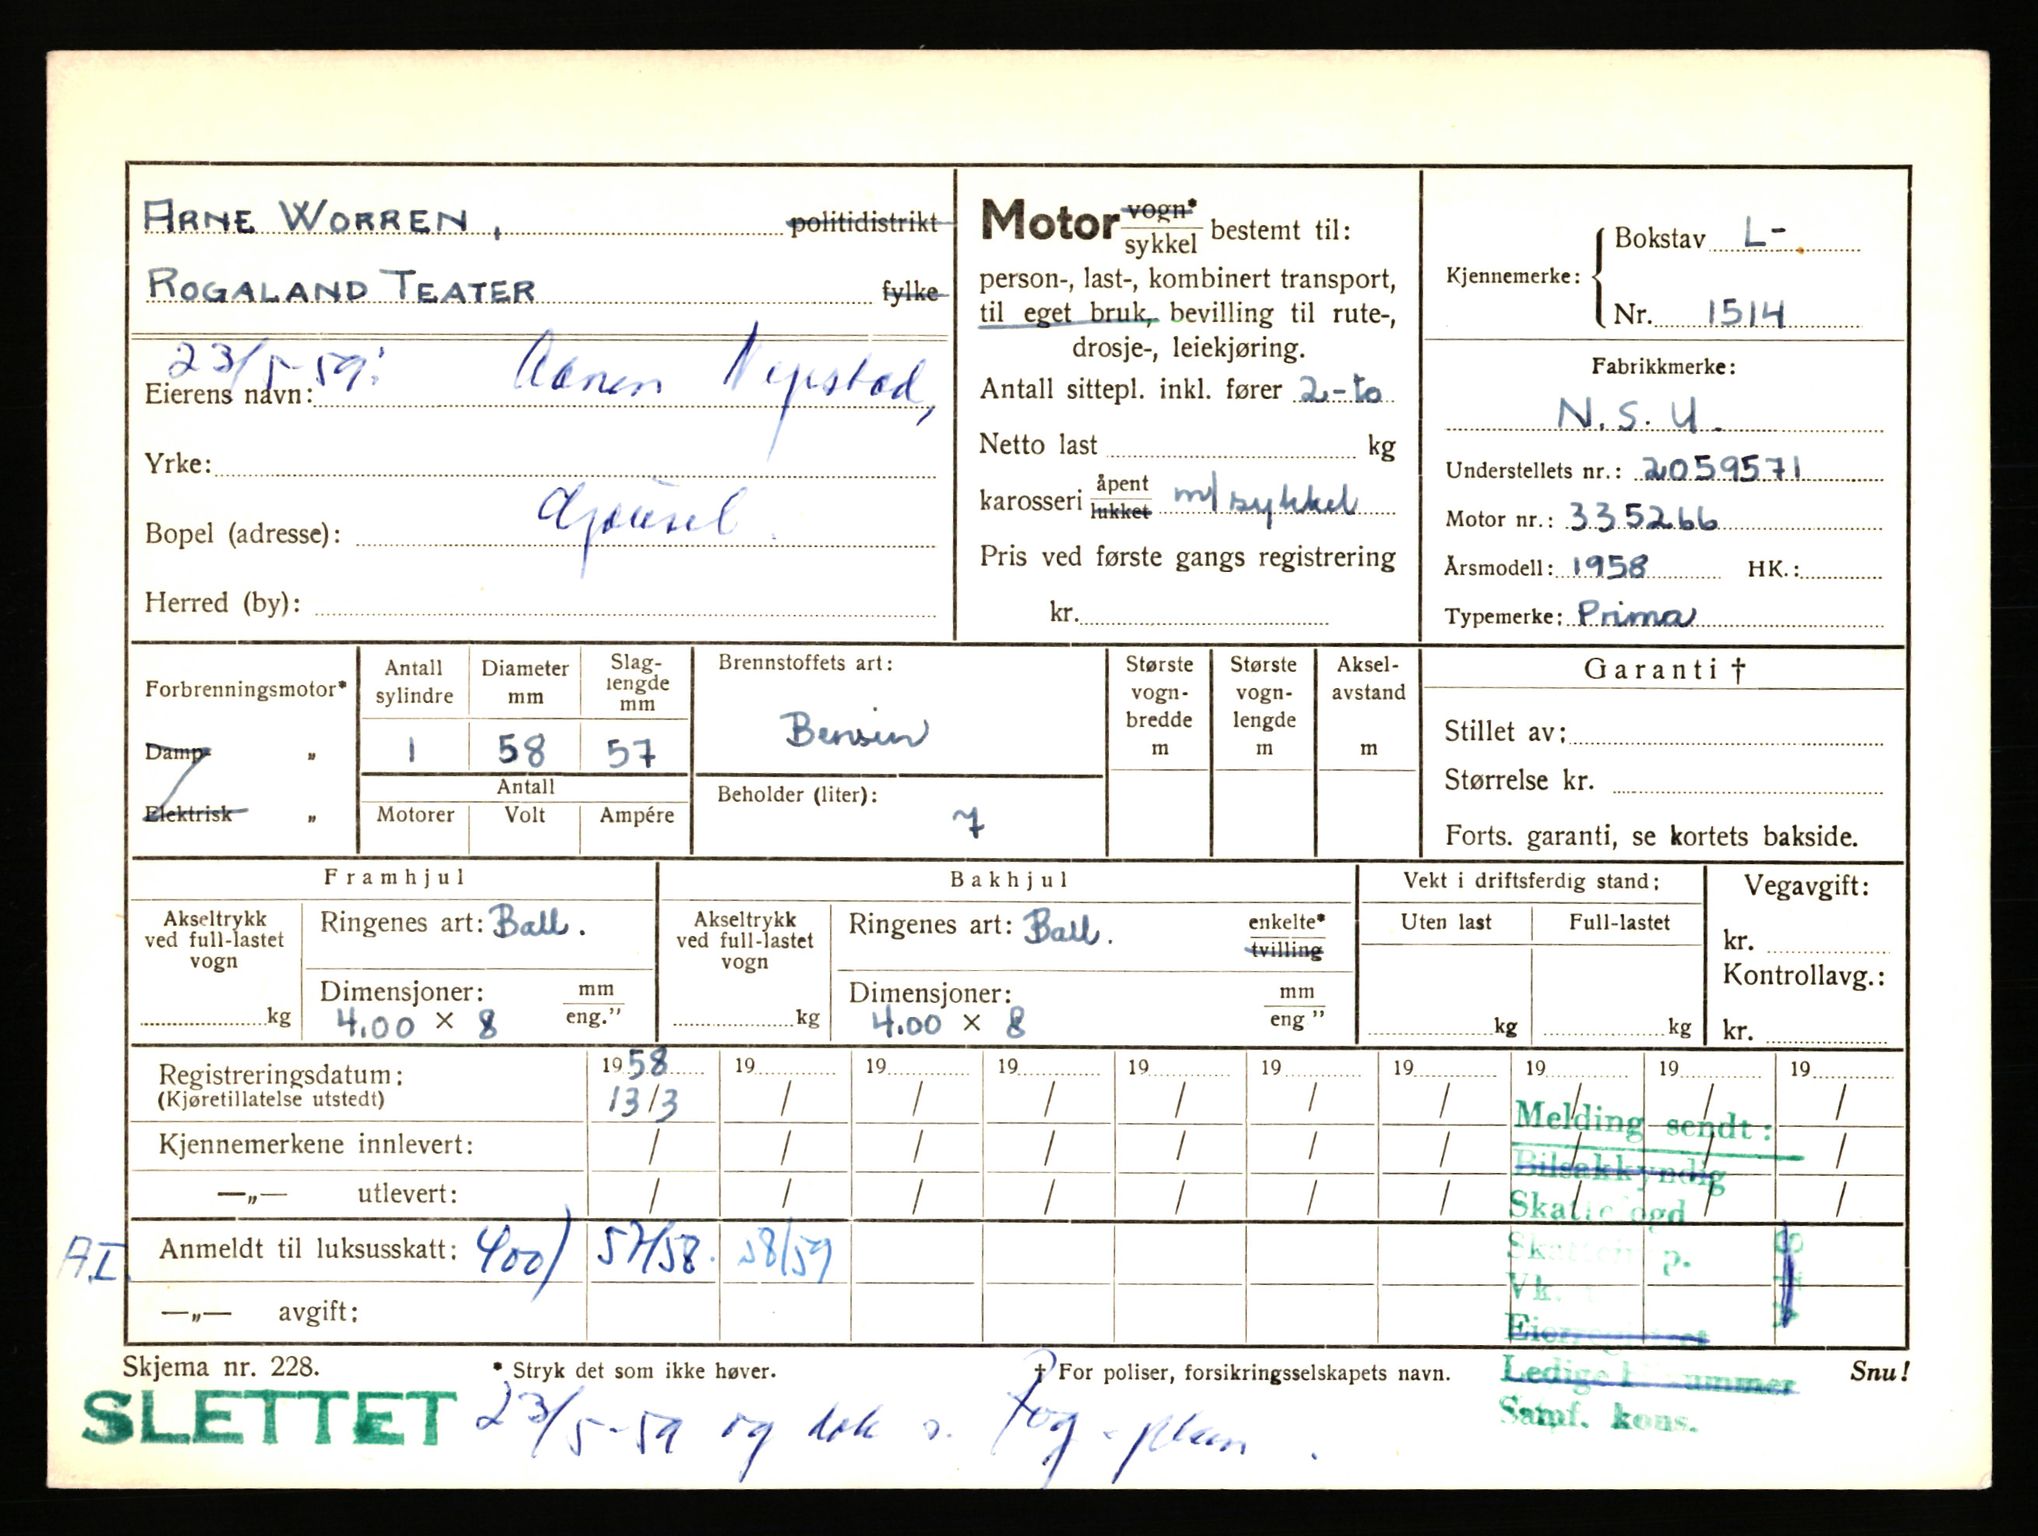 ARNE WORREN, politidistrikt
ROGALAND TEATER fylke
23/5-59:
Eierens navn:
Yrke:
Bopel (adresse):
Herred (by):
Motor vogn* / sykkel bestemt til:
person-, last-, kombinert transport,
til eget bruk, bevilling til rute-,
drosje-, leiekjøring.
Antall sittepl. inkl. fører 2-to
Netto last kg
karosseri åpent / lukket m/sykkel
Pris ved første gangs registrering
kr.
Kjennemerke:
Bokstav L-
Nr. 1514
Fabrikkmerke:
N.S.U.
Understellets nr.: 2059571
Motor nr.: 335266
Årsmodell: 1958 HK.:
Typemerke: Prima
Forbrenningsmotor*
Damp „
Elektrisk „
Antall sylindre 1
Diameter mm 58
Slag-lengde mm 57
Antall
Motorer Volt Ampére
Brennstoffets art:
Bensin
Beholder (liter):
7
Største vogn-bredde m
Største vogn-lengde m
Aksel-avstand m
Garanti †
Stillet av:
Størrelse kr.
Forts. garanti, se kortets bakside.
Framhjul
Akseltrykk ved full-lastet vogn
kg
Ringenes art: Ball.
Dimensjoner: mm / eng."
4.00 × 8
Bakhjul
Akseltrykk ved full-lastet vogn
kg
Ringenes art: Ball. enkelte* / tvilling
Dimensjoner: mm / eng "
4.00 × 8
Vekt i driftsferdig stand:
Uten last Full-lastet
kg kg
Vegavgift:
kr.
Kontrollavg.:
kr.
Registreringsdatum: 1958 19 19 19 19 19 19 19 19 19
(Kjøretillatelse utstedt) 13/3 / / / / / / / / /
Kjennemerkene innlevert: / / / / / / / / / /
—„— utlevert: / / / / / / / / / /
A.I. Anmeldt til luksusskatt: 400) 57/58. 58/59
—„— avgift:
Melding sendt:
Bilsakkyndig
Vk.
Samf. kons.
Skjema nr. 228. * Stryk det som ikke høver. † For poliser, forsikringsselskapets navn. Snu!
SLETTET 23/5-59 og